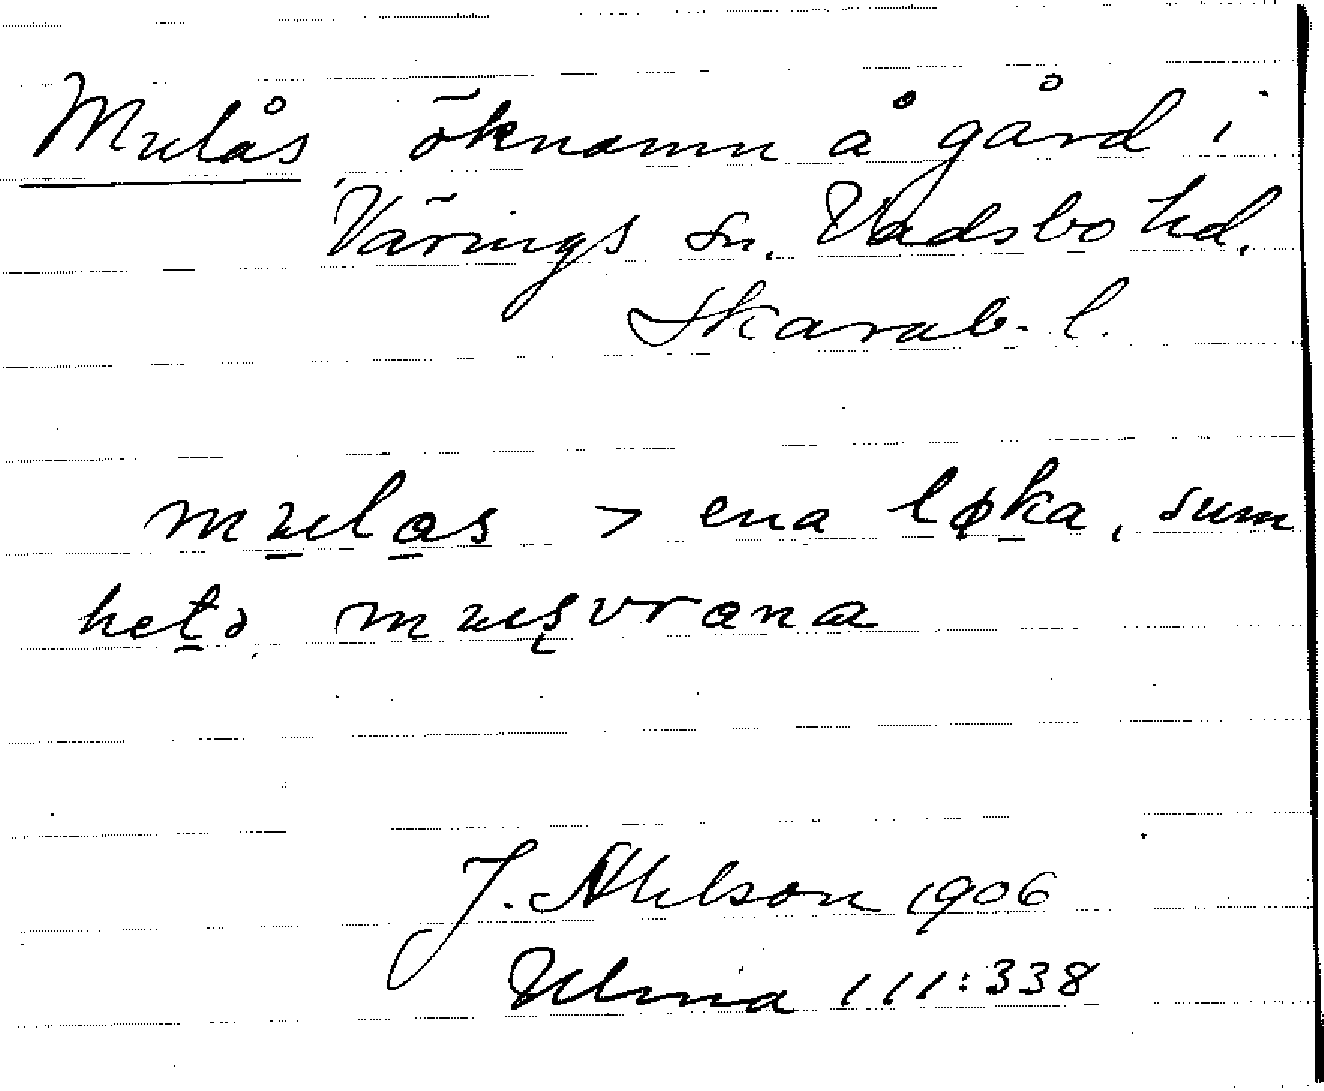 Mulås, öknamn å gård i
Värings sn. Vadsbo hd.
Skarab. l.
mulas > ena løka, sum
hetə
J. Ahlson 1906
Ulma 111:338